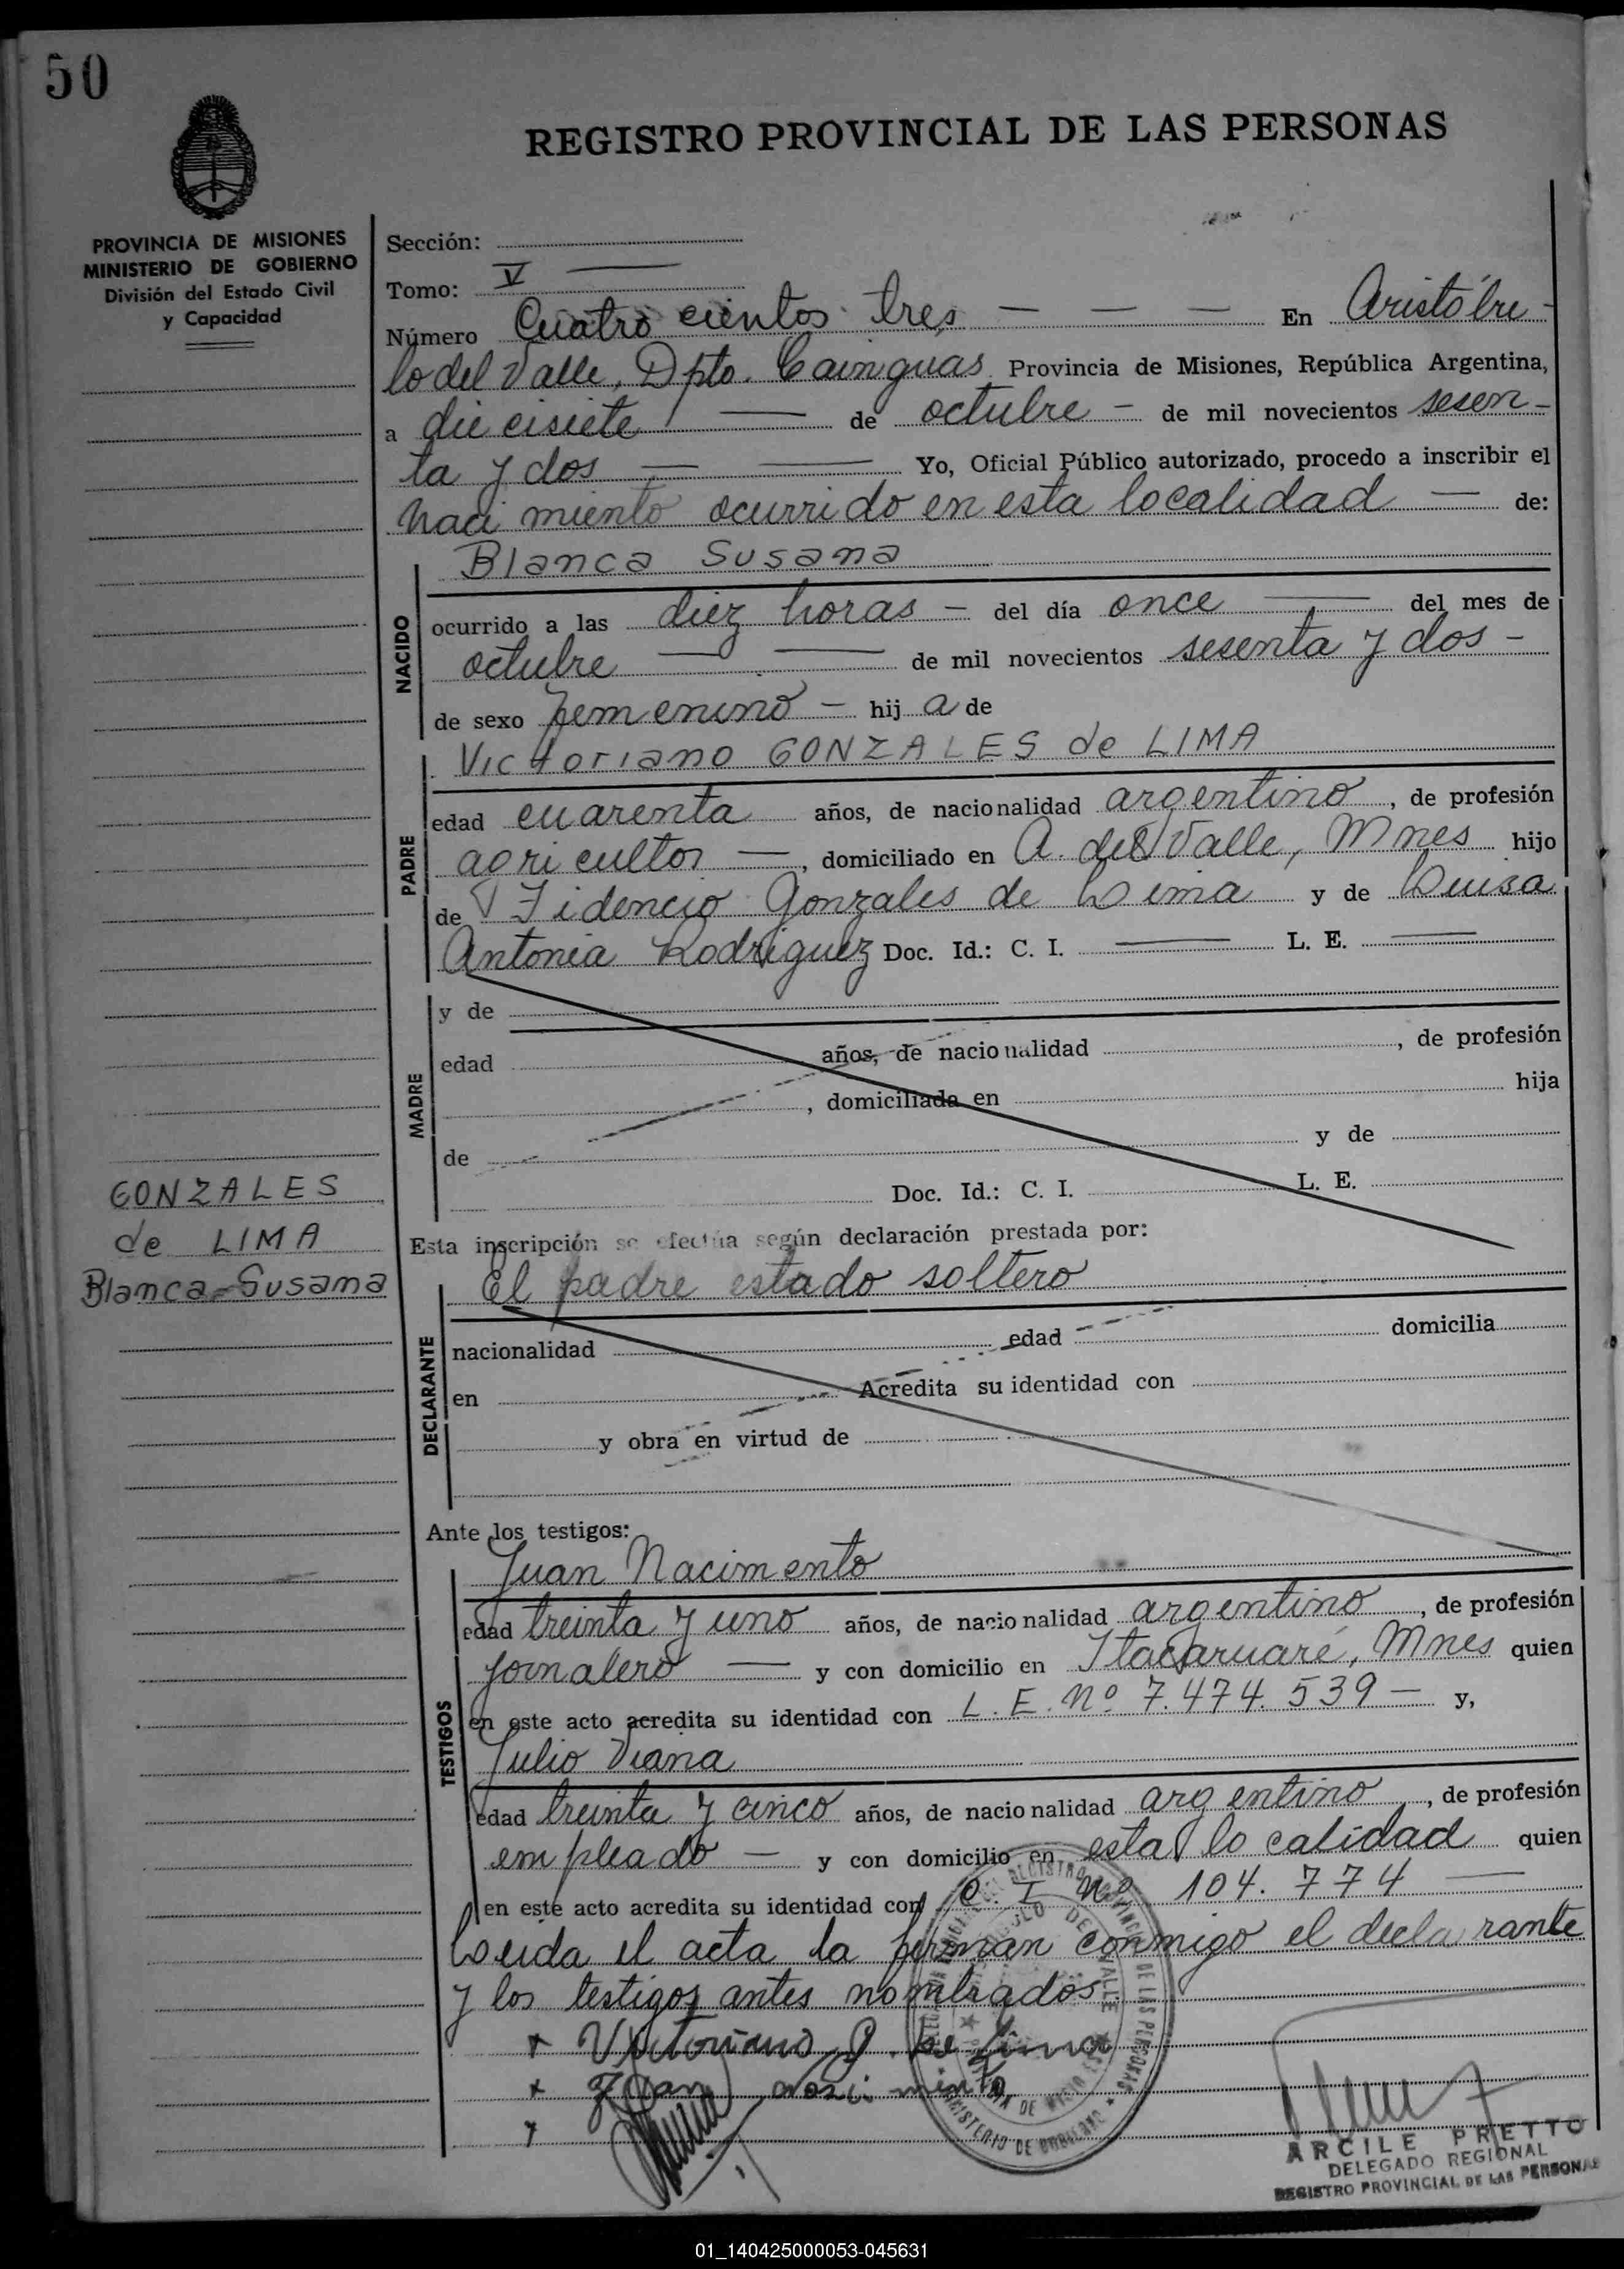 50
REGISTRO PROVINCIAL DE LAS PERSONAS
PROVINCIA DE MISIONES
MINISTERIO DE GOBIERNO
División del Estado Civil
y Capacidad
Sección:
Tomo: V
Número Cuatro cientos tres En Aristóbu-
lo del Valle, Dpto. Cainguas Provincia de Misiones, República Argentina,
a diecisiete de octubre - de mil novecientos sesen-
ta y dos Yo, Oficial Público autorizado, procedo a inscribir el
nacimiento ocurrido en esta localidad — de:
Blanca Susana
NACIDO
ocurrido a las diez horas - del día once del mes de
octubre de mil novecientos sesenta y dos -
de sexo femenino - hij a de
Victoriano GONZALES de LIMA
PADRE
edad cuarenta años, de nacionalidad argentino, de profesión
agricultor —, domiciliado en A. del Valle, Mnes hijo
de Fidencio Gonzales de Lima y de Luisa
Antonia Rodriguez Doc. Id.: C. I. — L. E. —
MADRE
y de
edad años, de nacionalidad , de profesión
, domiciliada en hija
de y de
Doc. Id.: C. I. L. E.
GONZALES
de LIMA
Blanca-Susana
Esta inscripción se efectúa según declaración prestada por:
El padre estado soltero
DECLARANTE
nacionalidad edad domicilia
en Acredita su identidad con
y obra en virtud de
Ante los testigos:
Juan Nacimento
TESTIGOS
edad treinta y uno años, de nacionalidad argentino, de profesión
jornalero — y con domicilio en Itacaruaré, Mnes quien
en este acto acredita su identidad con L. E. Nº 7.474.539 — y,
Julio Viana
edad treinta y cinco años, de nacionalidad argentino, de profesión
empleado — y con domicilio en esta localidad quien
en este acto acredita su identidad con C. I. Nº 104.774 —
Leida el acta la firman conmigo el declarante
y los testigos antes nombrados.
x Victoriano G. de Lima
x Juan nacimento
ARCILE PRETTO
DELEGADO REGIONAL
REGISTRO PROVINCIAL DE LAS PERSONAS
01_140425000053-045631